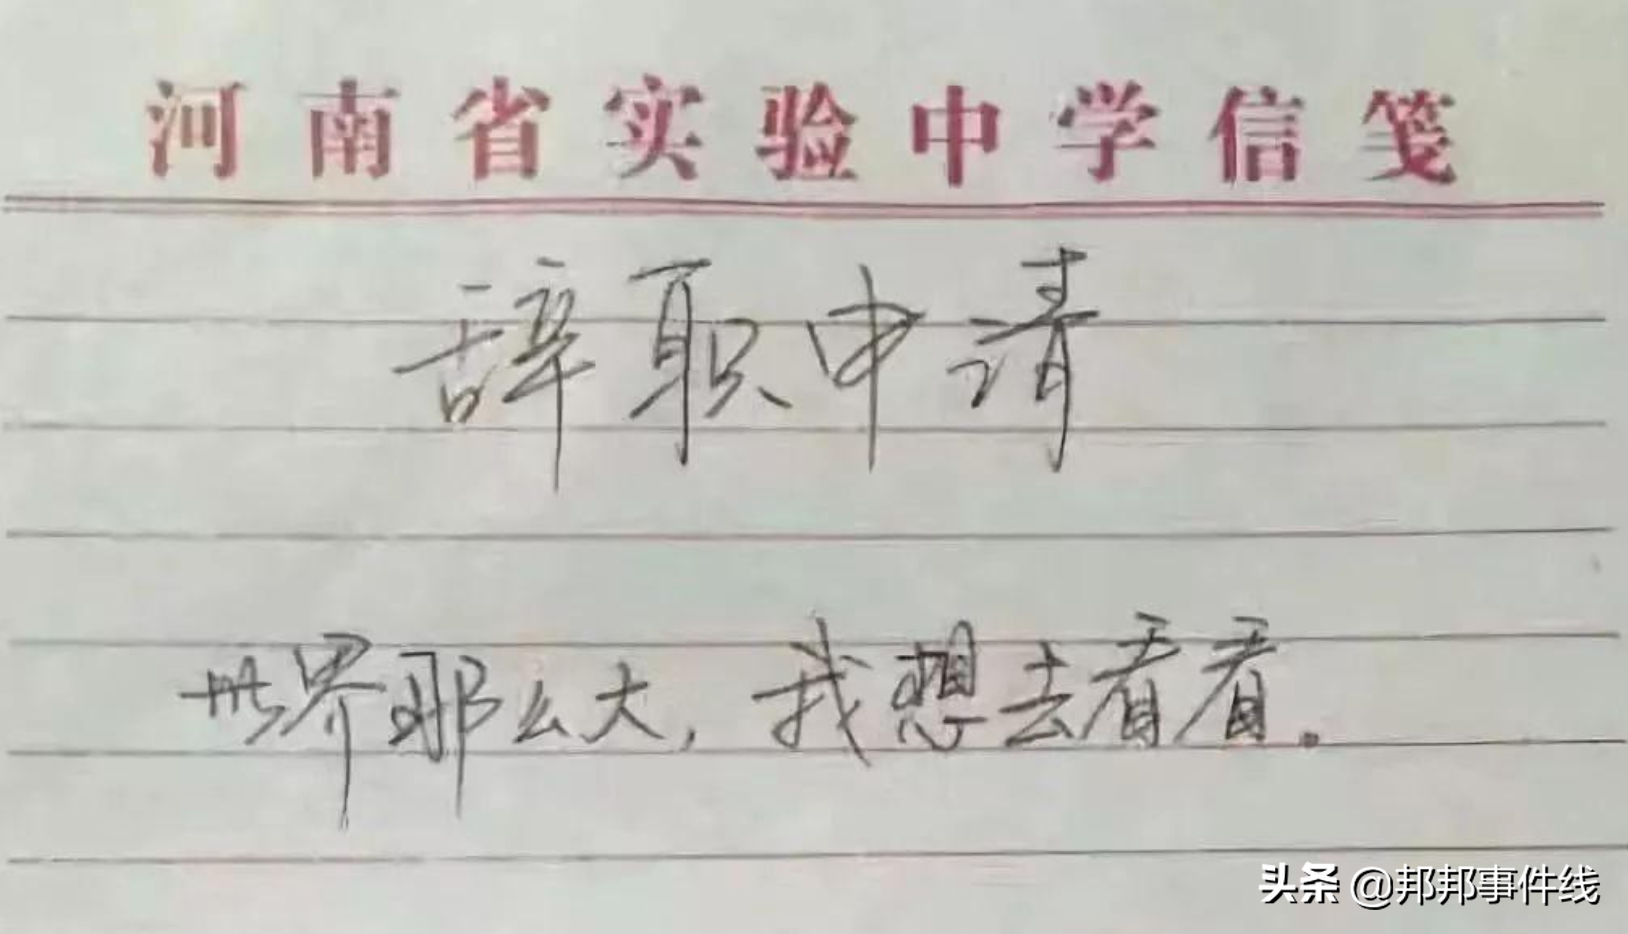 河南省实验中学信笺
辞职申请
世界那么大,我想去看看。
头条 @邦邦事件线